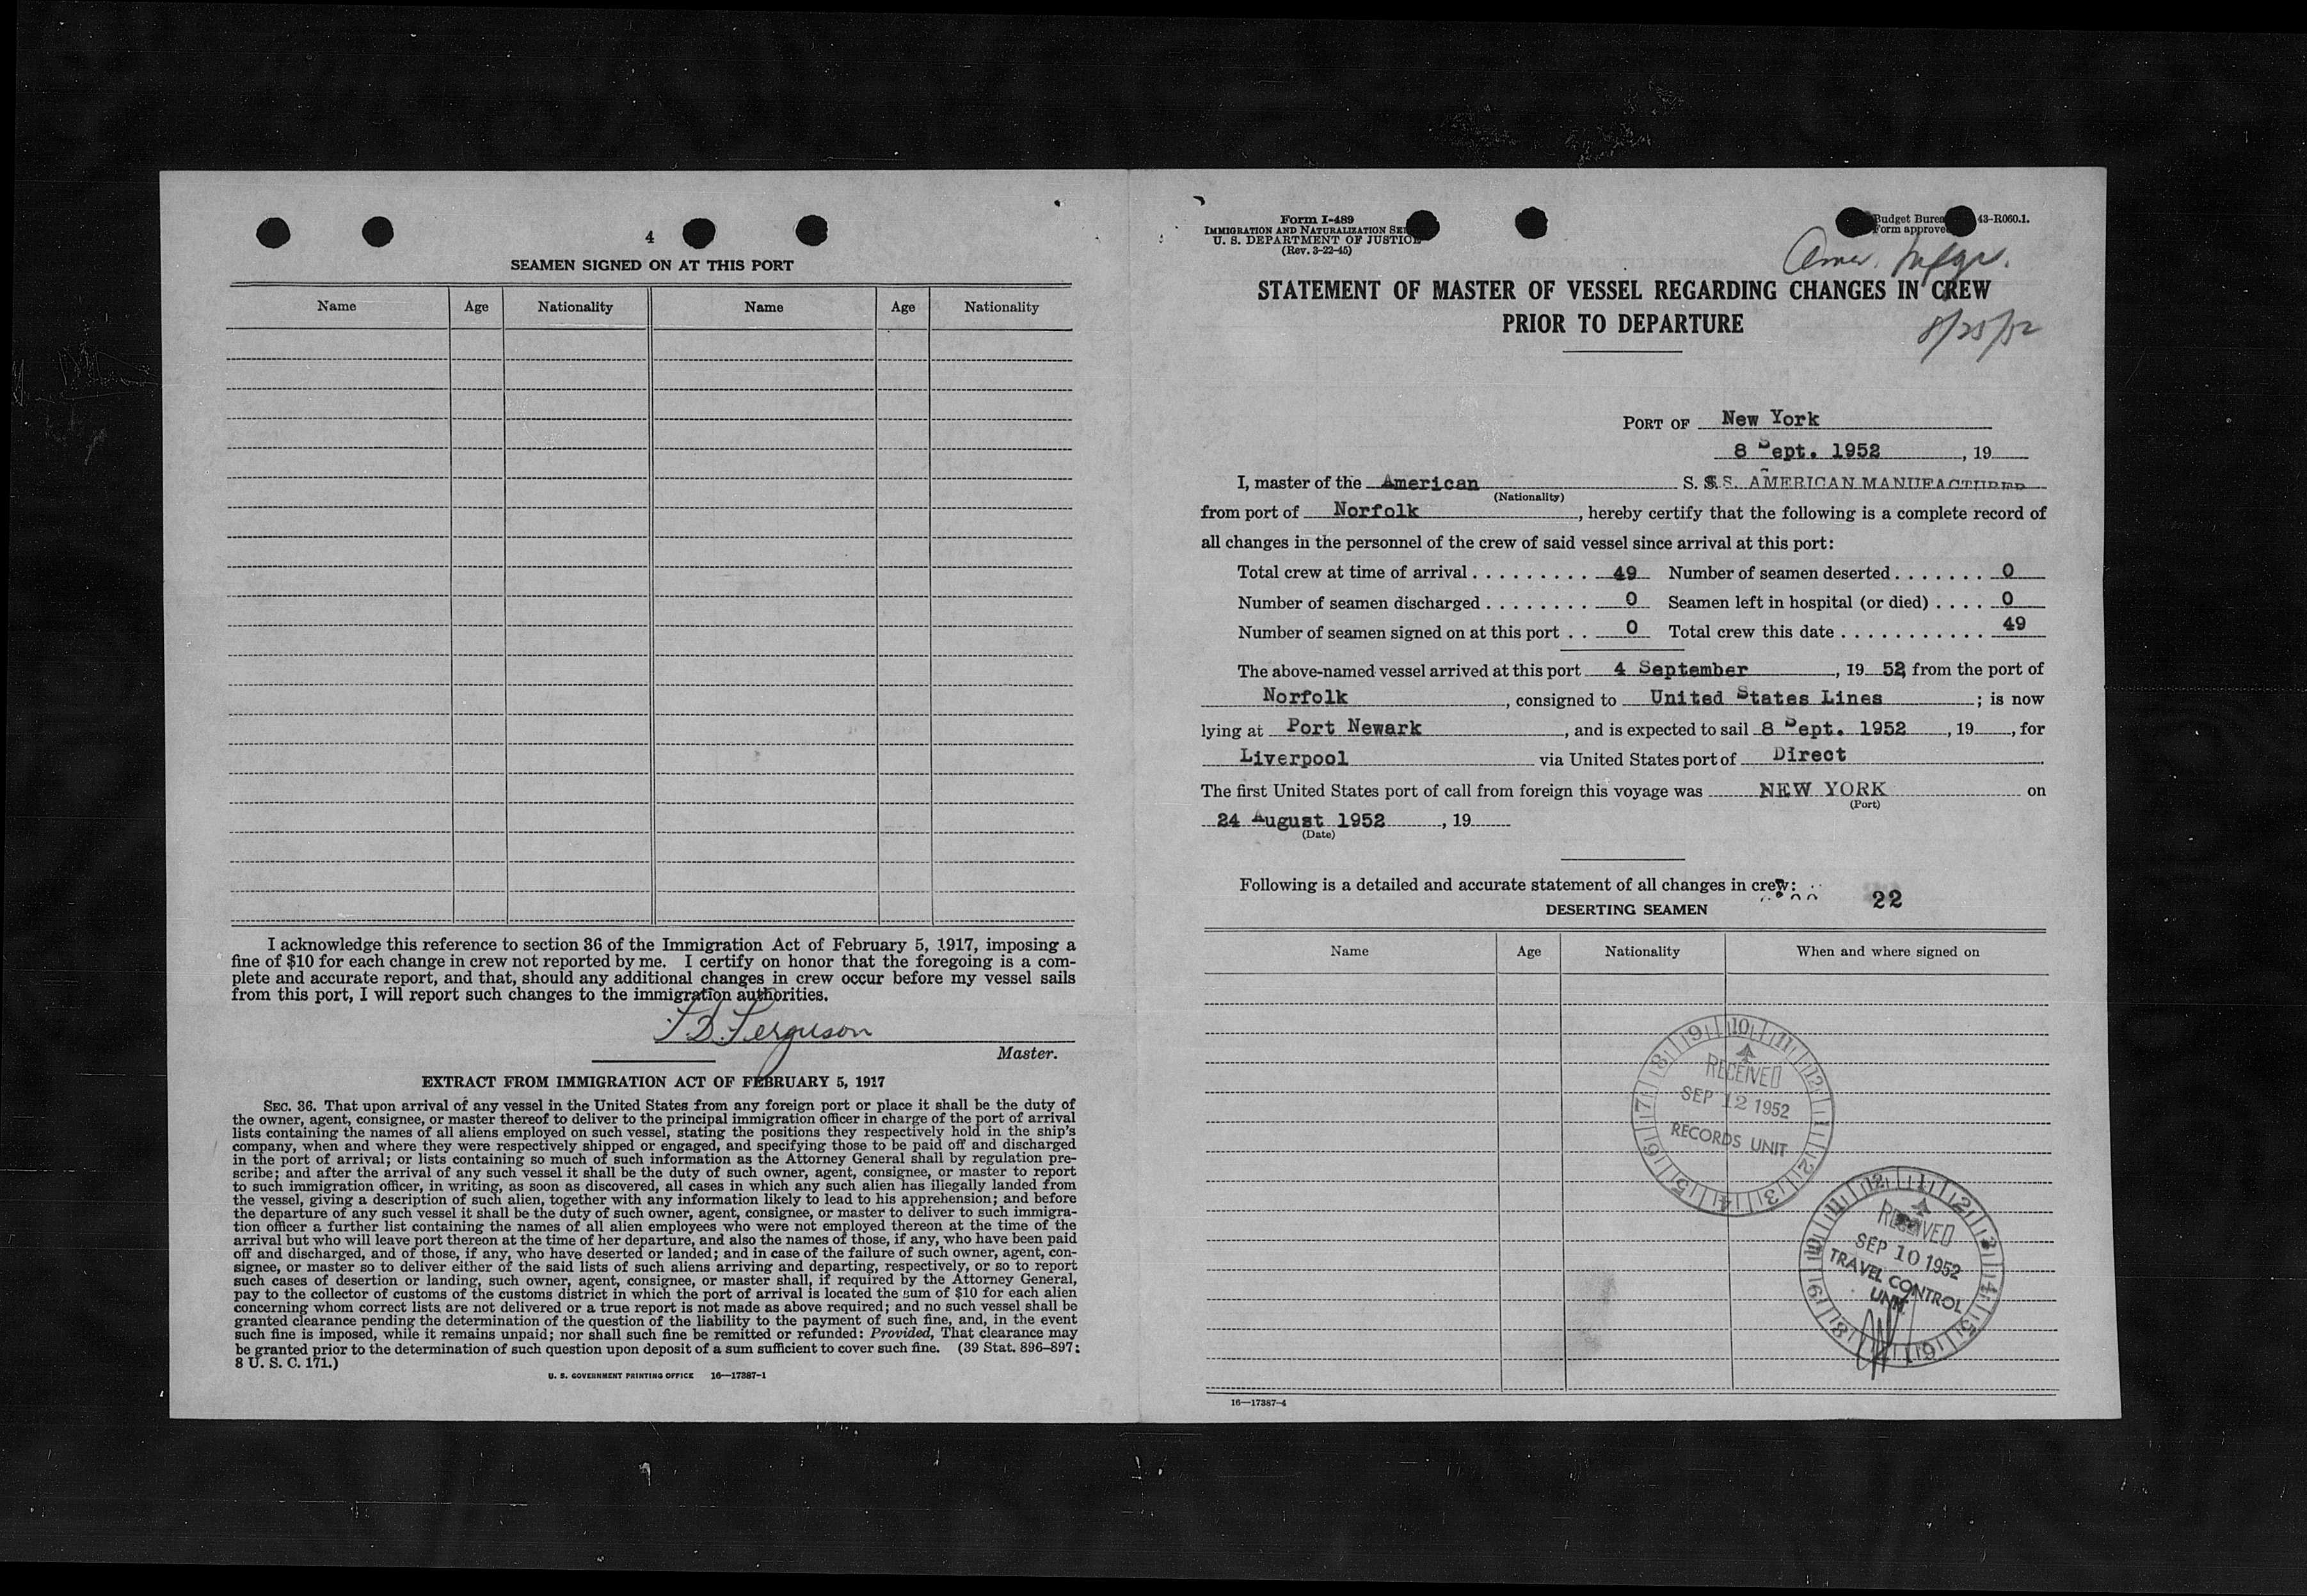 4
SEAMEN SIGNED ON AT THIS PORT
Name Age Nationality Name Age Nationality
I acknowledge this reference to section 36 of the Immigration Act of February 5, 1917, imposing a
fine of $10 for each change in crew not reported by me. I certify on honor that the foregoing is a com-
plete and accurate report, and that, should any additional changes in crew occur before my vessel sails
from this port, I will report such changes to the immigration authorities.
Ferguson
Master.
EXTRACT FROM IMMIGRATION ACT OF FEBRUARY 5, 1917
SEC. 36. That upon arrival of any vessel in the United States from any foreign port or place it shall be the duty of
the owner, agent, consignee, or master thereof to deliver to the principal immigration officer in charge of the port of arrival
lists containing the names of all aliens employed on such vessel, stating the positions they respectively hold in the ship's
company, when and where they were respectively shipped or engaged, and specifying those to be paid off and discharged
in the port of arrival; or lists containing so much of such information as the Attorney General shall by regulation pre-
scribe; and after the arrival of any such vessel it shall be the duty of such owner, agent, consignee, or master to report
to such immigration officer, in writing, as soon as discovered, all cases in which any such alien has illegally landed from
the vessel, giving a description of such alien, together with any information likely to lead to his apprehension; and before
the departure of any such vessel it shall be the duty of such owner, agent, consignee, or master to deliver to such immigra-
tion officer a further list containing the names of all alien employees who were not employed thereon at the time of the
arrival but who will leave port thereon at the time of her departure, and also the names of those, if any, who have been paid
off and discharged, and of those, if any, who have deserted or landed; and in case of the failure of such owner, agent, con-
signee, or master so to deliver either of the said lists of such aliens arriving and departing, respectively, or so to report
such cases of desertion or landing, such owner, agent, consignee, or master shall, if required by the Attorney General,
pay to the collector of customs of the customs district in which the port of arrival is located the sum of $10 for each alien
concerning whom correct lists are not delivered or a true report is not made as above required; and no such vessel shall be
granted clearance pending the determination of the question of the liability to the payment of such fine, and, in the event
such fine is imposed, while it remains unpaid; nor shall such fine be remitted or refunded: Provided, That clearance may
be granted prior to the determination of such question upon deposit of a sum sufficient to cover such fine. (39 Stat. 896–897;
8 U. S. C. 171.)
U. S. GOVERNMENT PRINTING OFFICE 16—17387-1
Form I-489
IMMIGRATION AND NATURALIZATION
U. S. DEPARTMENT OF JUSTICE
(Rev. 3-22-45)
Budget 43-R060.1.
Form
Amer. Mfgr.
8/25/52
STATEMENT OF MASTER OF VESSEL REGARDING CHANGES IN CREW
PRIOR TO DEPARTURE
PORT OF New York
8 Sept. 1952 , 19
I, master of the American S. S.S. AMERICAN MANUFACTURER
(Nationality)
from port of Norfolk , hereby certify that the following is a complete record of
all changes in the personnel of the crew of said vessel since arrival at this port:
Total crew at time of arrival . . . . . . . . . . 49 Number of seamen deserted . . . . . . . 0
Number of seamen discharged . . . . . . . . 0 Seamen left in hospital (or died) . . . . 0
Number of seamen signed on at this port . . 0 Total crew this date . . . . . . . . . . . 49
The above-named vessel arrived at this port 4 September , 19 52, from the port of
Norfolk , consigned to United States Lines ; is now
lying at Port Newark , and is expected to sail 8 Sept. 1952 , 19 , for
Liverpool via United States port of Direct
The first United States port of call from foreign this voyage was NEW YORK on
(Port)
24 August 1952 , 19
(Date)
Following is a detailed and accurate statement of all changes in crew:
22
DESERTING SEAMEN
Name Age Nationality When and where signed on
9 10 11 12 1 2 3 4 5 6 7 8
RECEIVED
SEP 12 1952
RECORDS UNIT
12 1 2 3 4 5 6 7 8 9 10 11
RECEIVED
SEP 10 1952
TRAVEL CONTROL
UNIT
16—17387-4